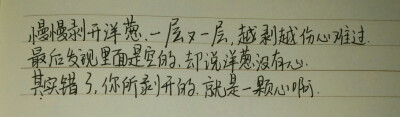 慢慢剥开洋葱.一层又一层,越剥越伤心难过.
最后发现里面是空的,却说洋葱没有心.
其实错了,你所剥开的,就是一颗心啊.